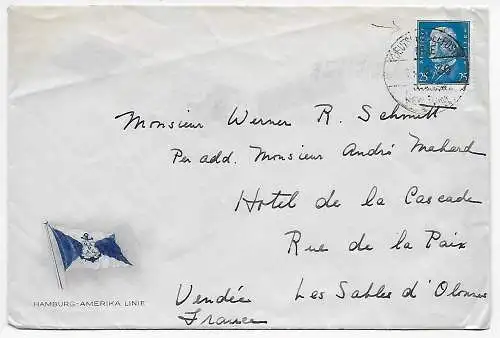 25 25
Monsieur Werner R. Schmitt
Per add. Monsieur André Mahard
Hotel de la Cascade
Rue de la Paix
Vendée Les Sables d'Olonnes
France
HAMBURG-AMERIKA LINIE